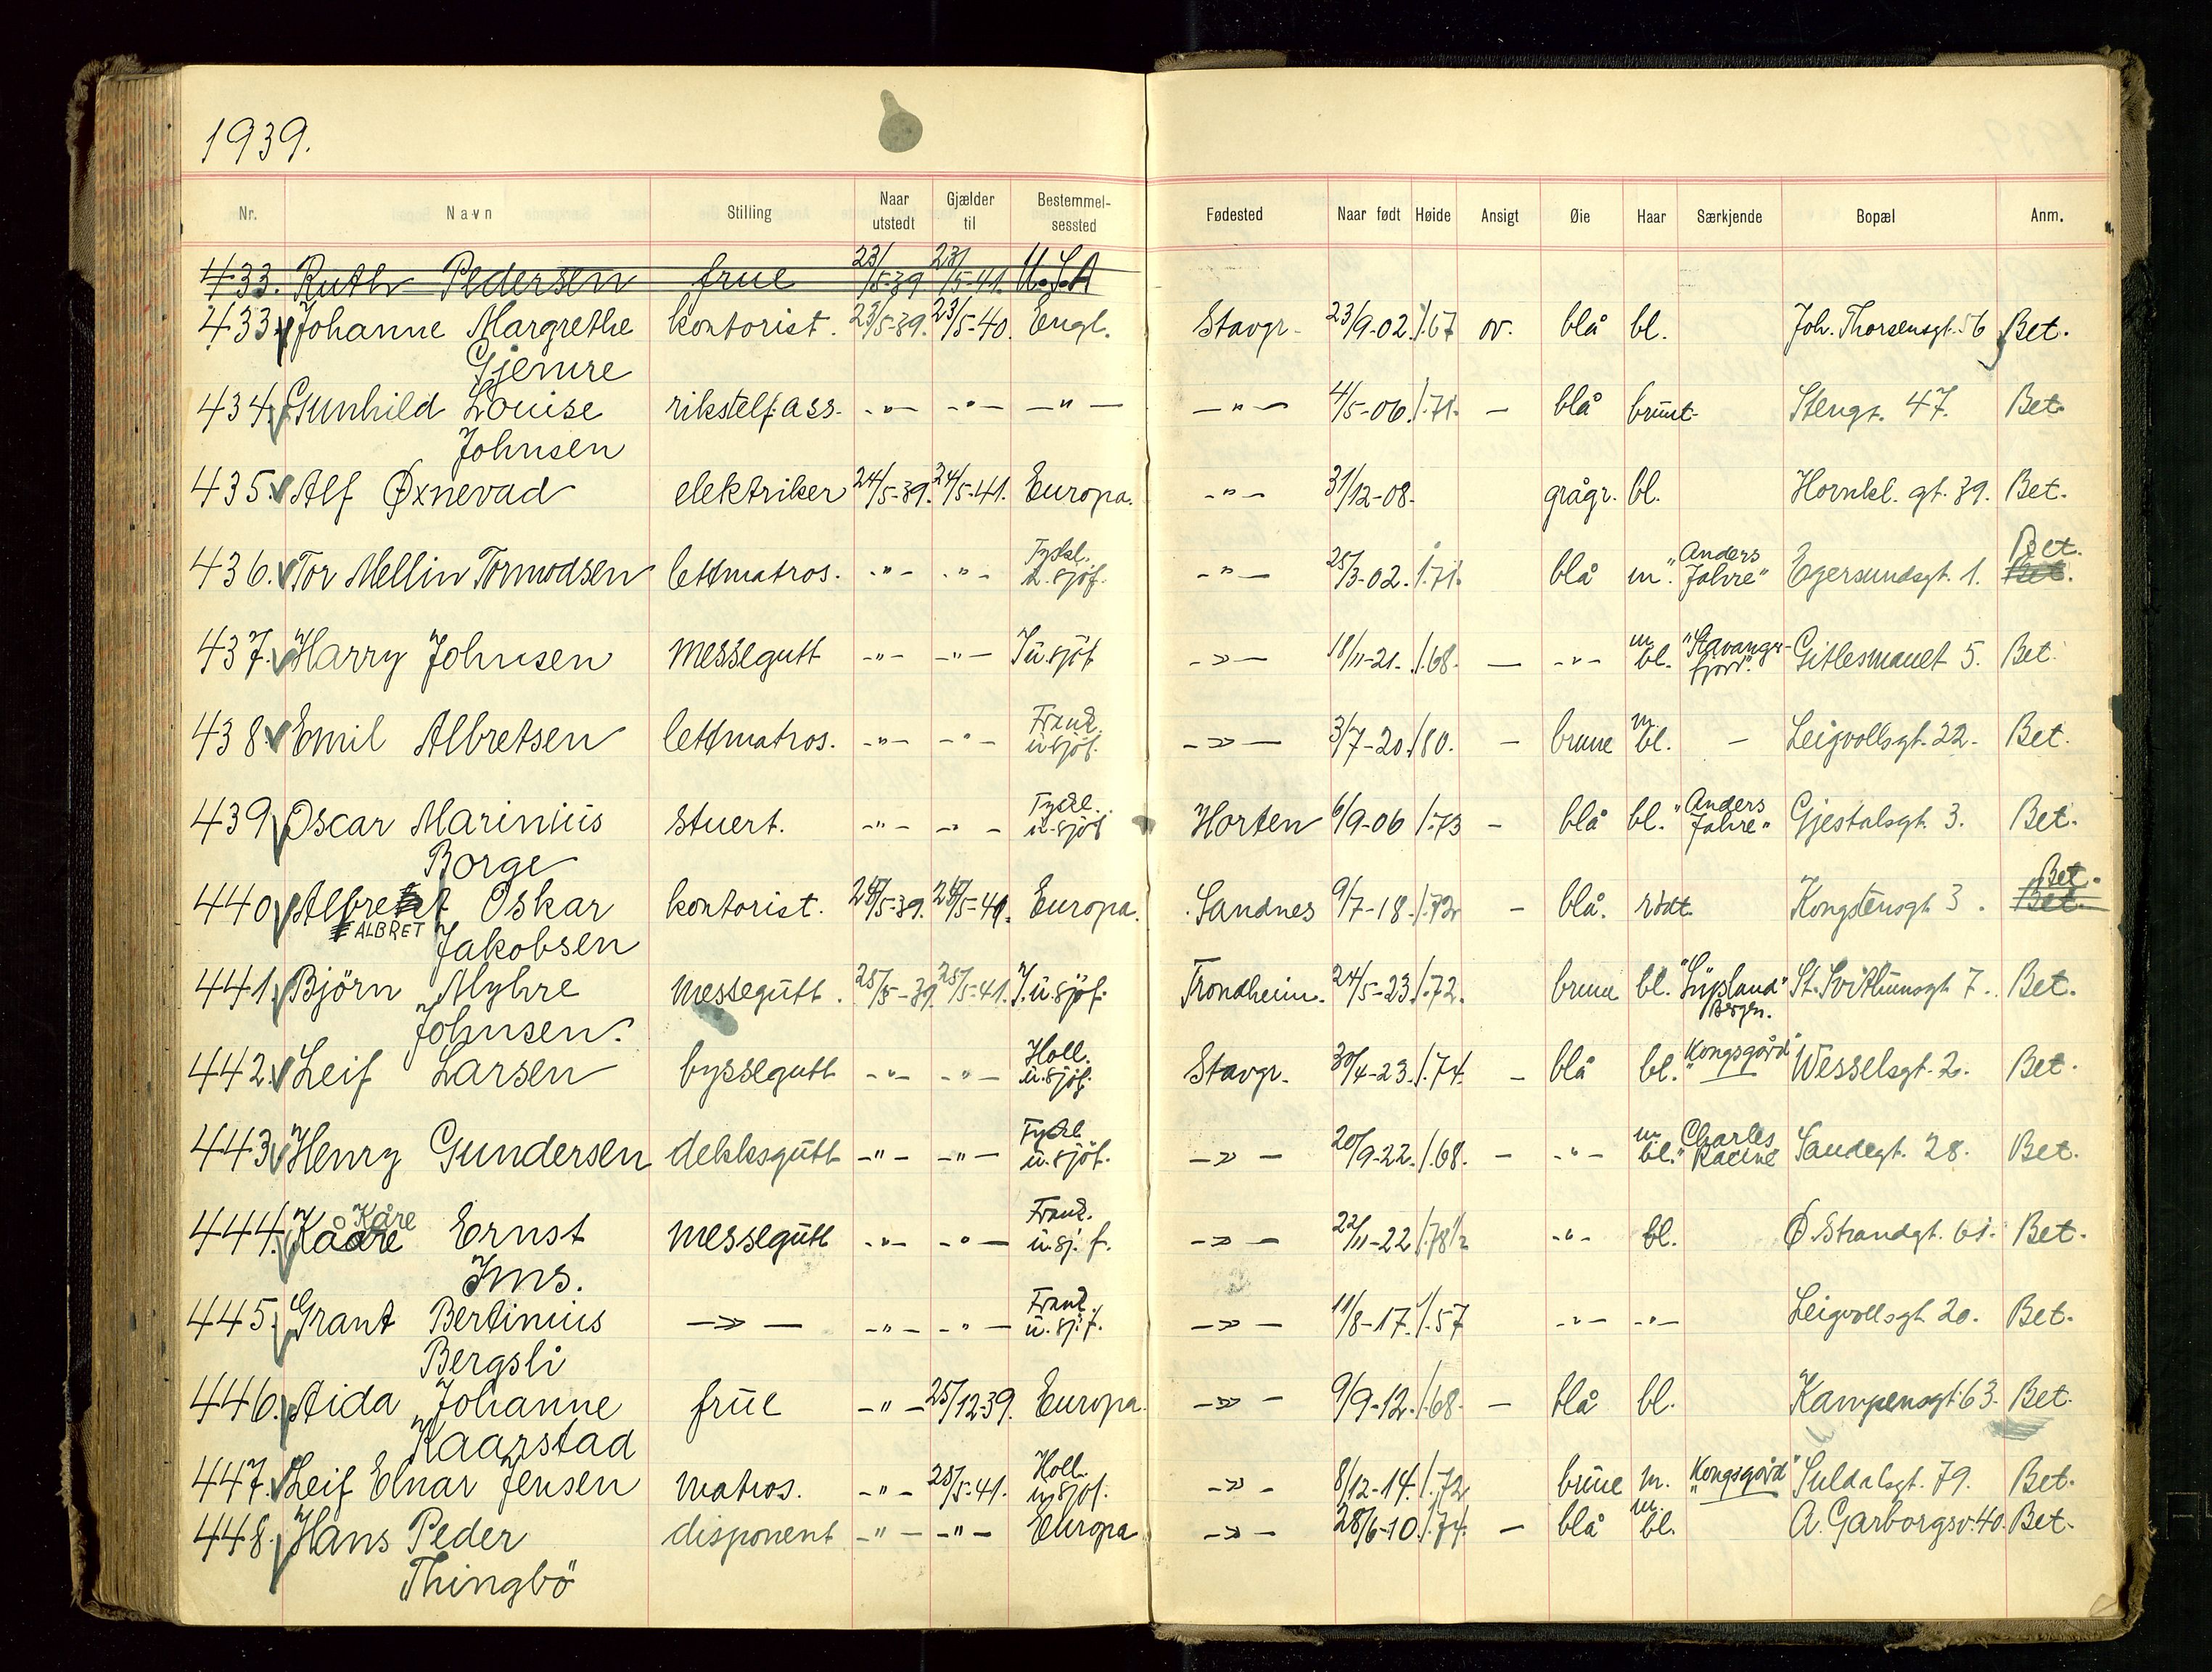 1939.
Nr. Navn Stilling Naar utstedt Gjælder til Bestemmelsessted Fødested Naar født Høide Ansigt Øie Haar Særkjende Bopæl Anm.
433. Ruth Pedersen frue 23/5-39 23/5-41. U.S.A
433. Johanne Margrethe kontorist. 23/5-39. 23/5-40. Engl. Stavgr. 23/9-02. 1.67 ov. blå bl. Joh. Thorsensgt. 56 Bet.
Gjemre
434. Gunhild Louise rikstelf.ass. -"- -"- -"- -"- 4/5-06. 1.71. - blå brunt. Stengt. 47. Bet.
Johnsen
435. Alf Øxnevad elektriker 24/5-39. 24/5-41. Europa. -"- 31/12-08. grågr. bl. Hornkl. gt. 39. Bet.
Tyskl. Anders Bet.
436. Tor Mellin Tormodsen lettmatros. -"- -"- u. sjöf. -"- 25/3-02. 1.71. blå m. "Jahre" Egersundsgt. 1. Bet.
437. Harry Johnsen messegutt -"- -"- I u. sjöf -"- 18/11-21. 1.68. - -"- m. bl. "Stavangerfjord". Gitlesmauet 5. Bet.
Frank.
438. Emil Albretsen lettmatros. -"- -"- u. sjöf. -"- 3/7-20. 1.80. - brune m. bl. - Leigvollsgt. 22. Bet.
Tyskl. "Anders
439. Oscar Marinius stuert. -"- -"- u. sjöf Horten 6/9-06 1.73 - blå bl. Jahre" Gjestalsgt. 3. Bet.
Borge Bet.
440. Albret Oskar kontorist. 5-39. 5-40. Europa. Sandnes 9/7-18. 1.72 - blå. rödt. Kongstensgt. 3. Bet.
ALBRET Jakobsen
441. Björn Myhre messegutt. 25/5-39. 25/5-41. I. u. sjöf. Trondheim. 24/5-23. 1.72. brune bl. St. Svithunsgt. 7. Bet.
Johnsen. Bergen.
Holl. Kongsgård"
442. Leif Larsen byssegutt -"- -"- u. sjöf. Stavgr. 30/4-23. 1.74. - blå bl. " Wesselsgt. 2. Bet.
Tyskl. m. Charles
443. Henry Gundersen dekksgutt -"- -"- u. sjöf. -"- 20/9-22. 1.68. - -"- bl. "Racine Sandegt. 28. Bet.
Kåre Frank.
444. Kåare Ernst messegutt -"- -"- u. sj. f. -"- 22/11-22 1.78½ -"- bl. Ø. Strandgt. 61. Bet.
Ims.
Frank.
445. Grant Bertinius -"- -"- -"- u. sj. f. -"- 11/8-17. 1.57 -"- -"- Leigvollsgt. 20. Bet.
Bergsli
446. Aida Johanne frue -"- 25/12-39. Europa. -"- 9/9-12. 1.68. - blå bl. Kampensgt. 63. Bet.
Kaarstad
Holl.
447. Leif Einar Jensen matros. -"- 25/5-41. u. sjöf. -"- 8/12-14. 1.72 brune m. "Kongsgård" Suldalsgt. 79. Bet.
448. Hans Peder disponent -"- -"- Europa -"- 28/6-10. 1.74. - blå m. bl. A. Garborgsv. 40. Bet.
Thingbö